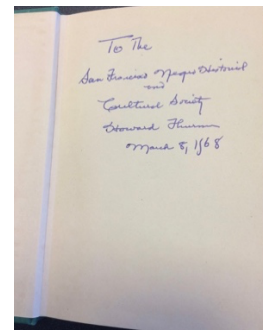 To The
San Francisco Negro Historical
and
Cultural Society
Howard Thurman
March 8, 1968